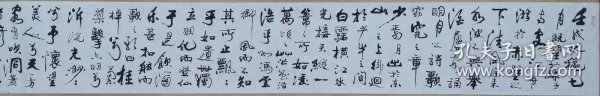 壬戌之秋七
月既望
游於赤壁之
下清風徐来
水波不興舉
酒属客誦
明月之詩歌
窈窕之章
少焉月出於東
山之上徘徊
於斗牛之間
白露橫江水
光接天縱一
葦之所如凌
萬頃之茫然
浩浩乎如馮虛
御風而不知
其所止飄飄
乎如遺世獨
立羽化而登仙
於是飲酒
樂甚扣舷而
歌之歌曰桂
棹兮蘭槳
擊空明兮
泝流光渺渺
兮予懷望
美人兮天一方
客有吹洞簫
孔夫子旧书网
book.kongfz.com